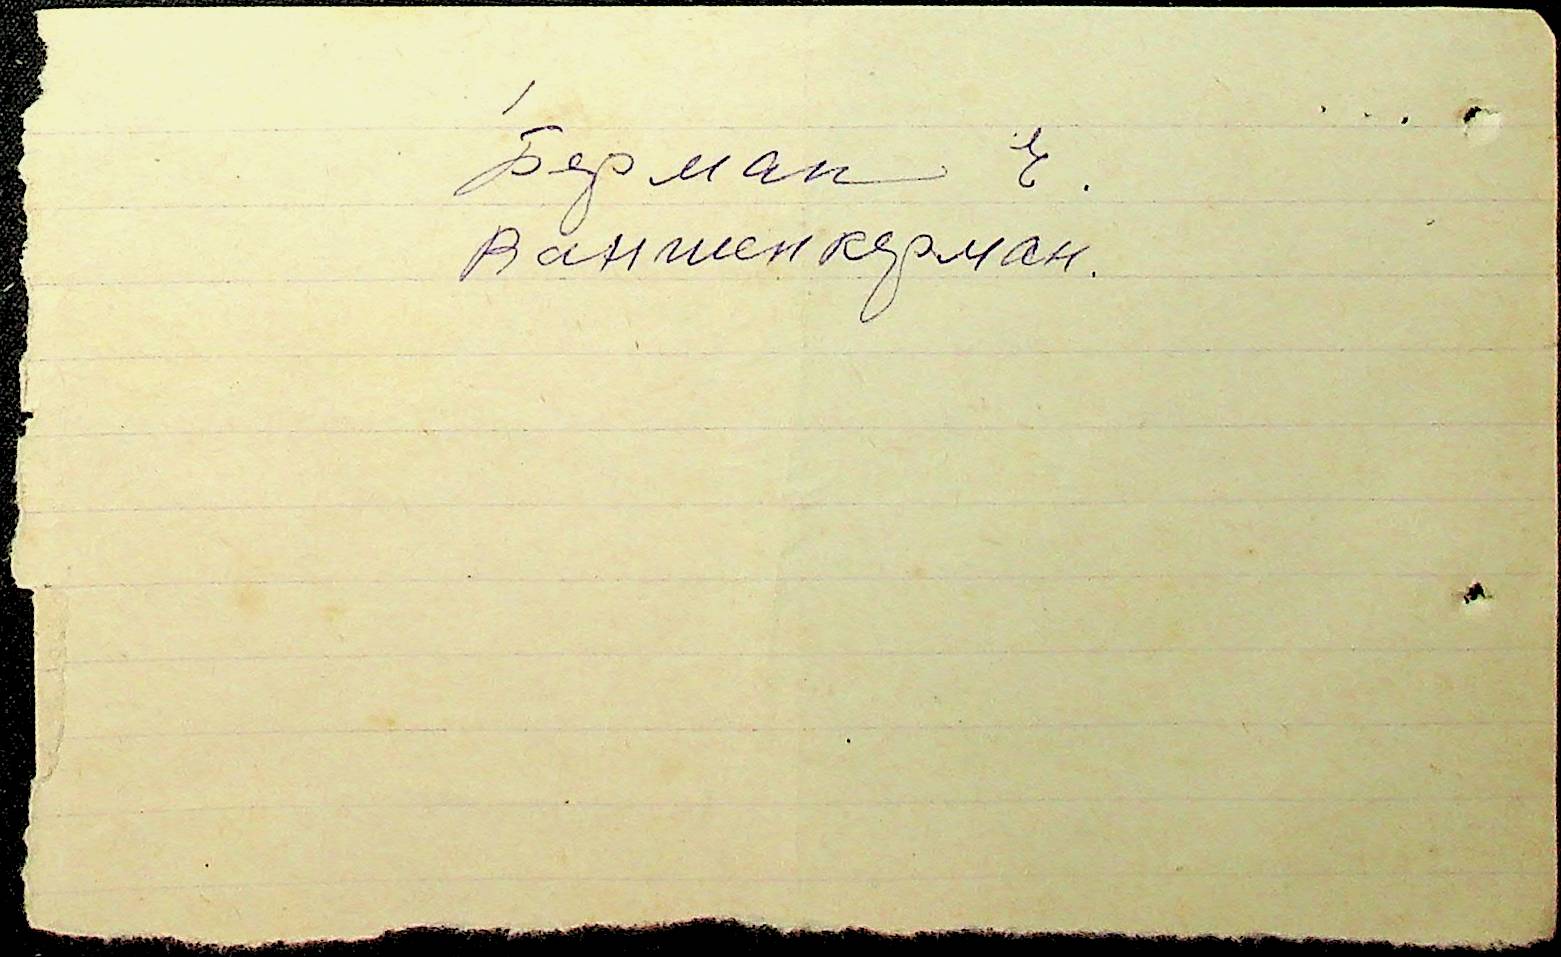 Берман Е.
Ваншенкерман.